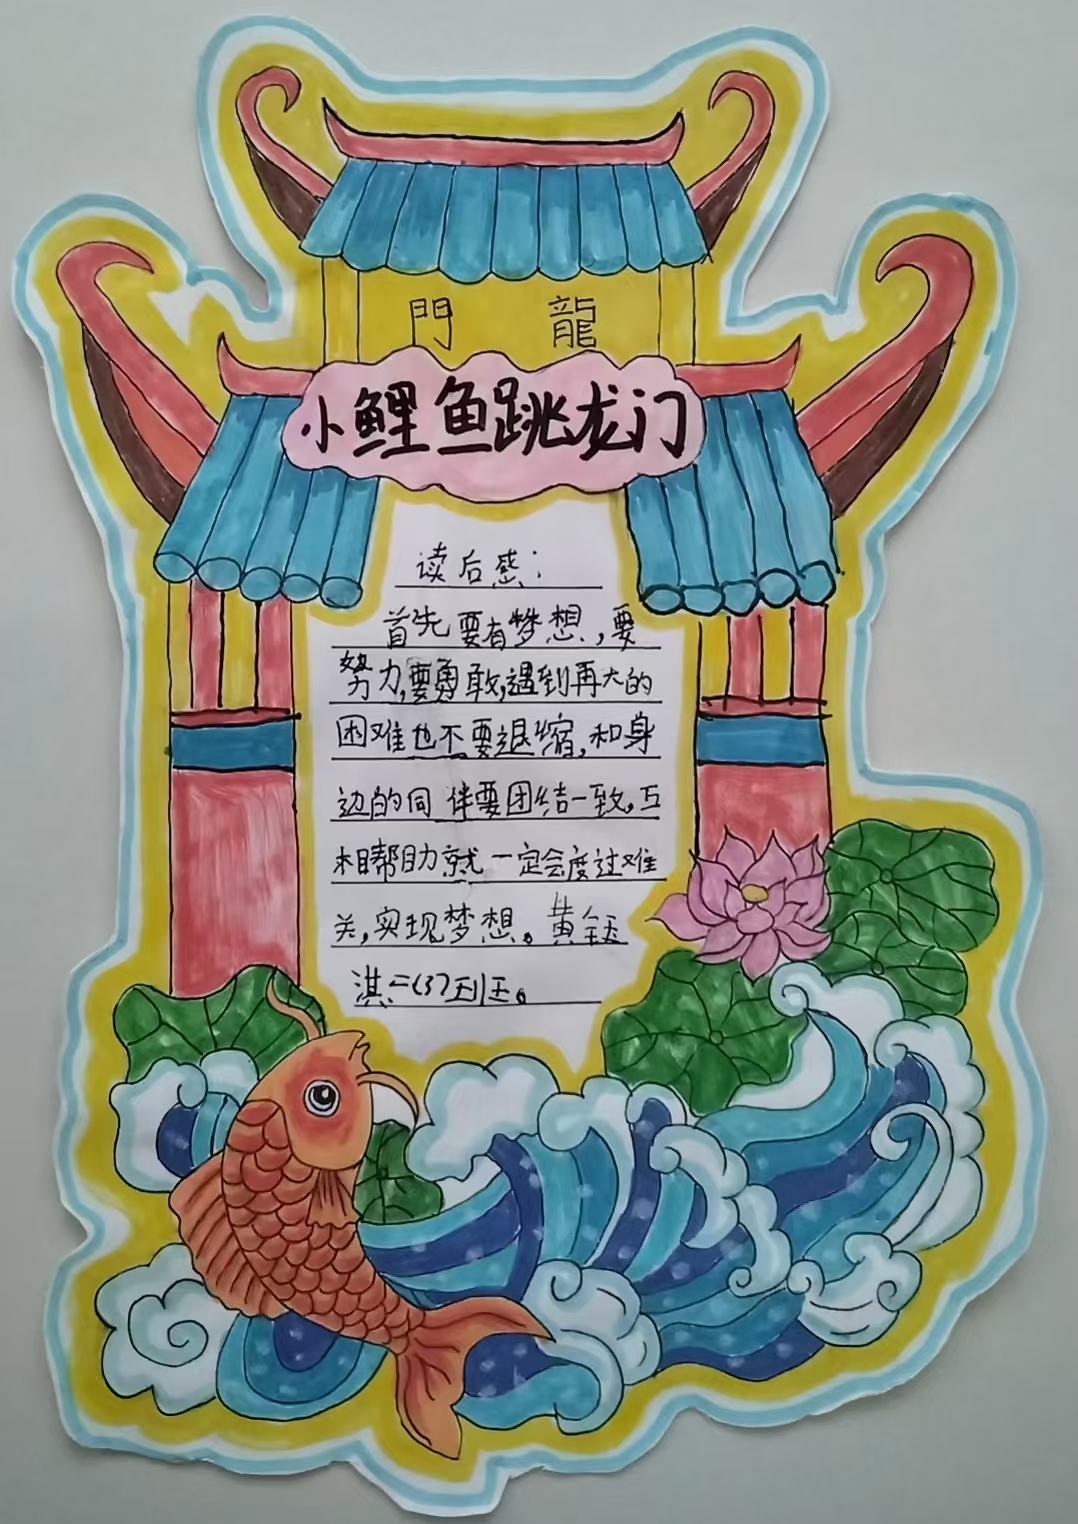 門 龍
小鲤鱼跳龙门
读后感：
首先要有梦想，要
努力，要勇敢，遇到再大的
困难也不要退缩，和身
边的同伴要团结一致，互
相帮助就一定会度过难
关，实现梦想。黄钰
淇二(3)班。